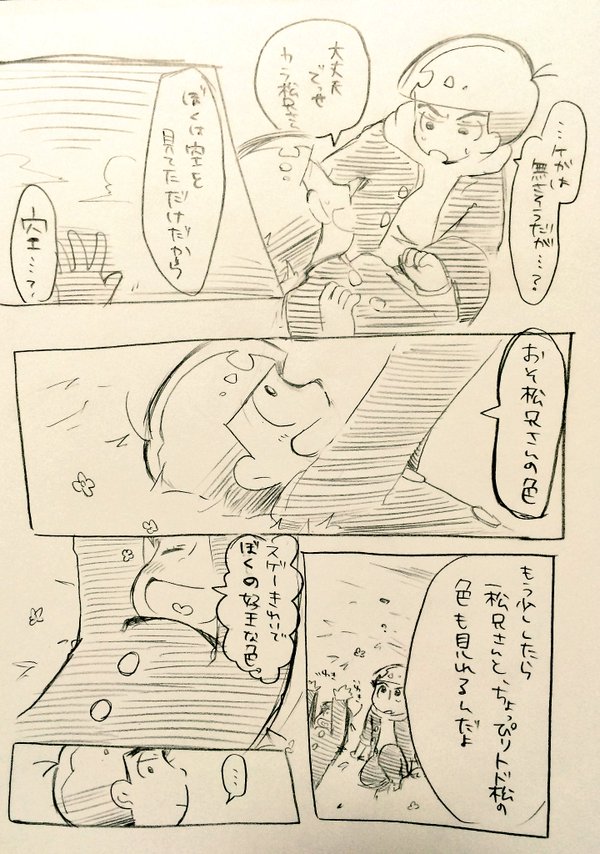 …ケガは
無さそうだが…?
大丈夫
でっせ
カラ松兄さん
ぼくは空を
見てただけだから
空…?
おそ松兄さんの色
もう少ししたら
一松兄さんと、ちょっぴりトド松の
色も見れるんだよ
スゲーきれいで
ぼくの好きな色
…